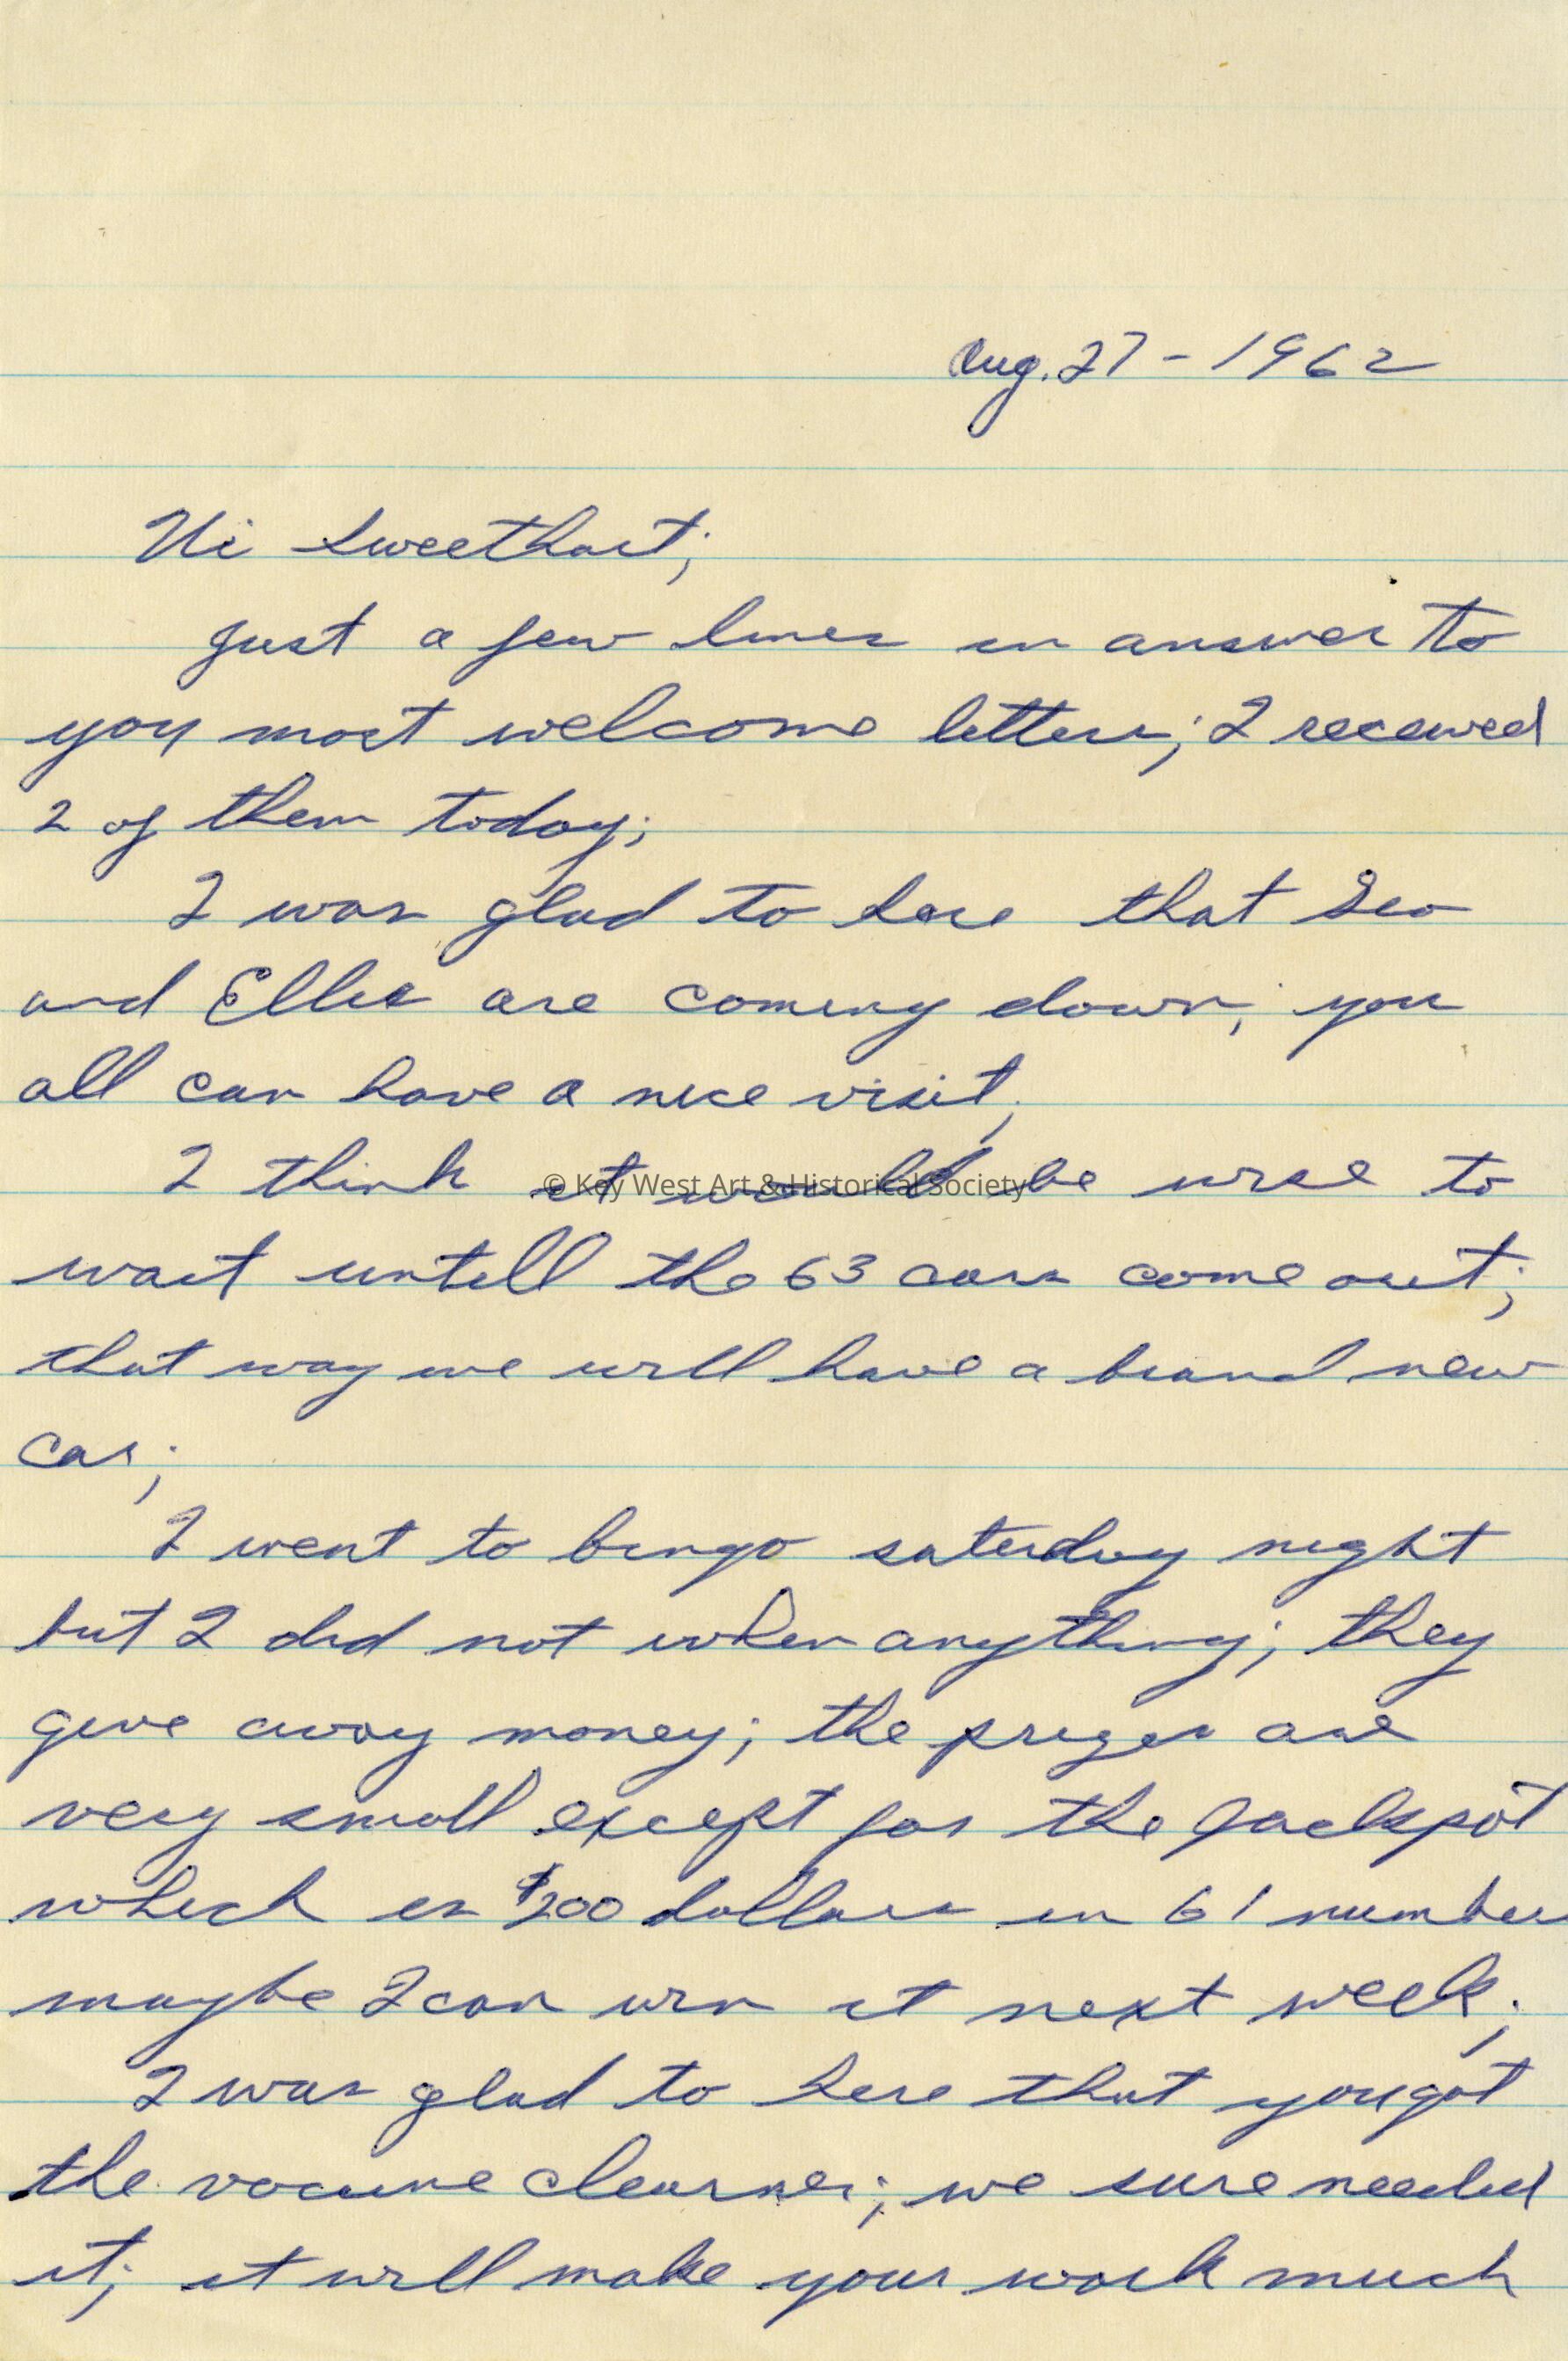 Aug. 27 - 1962
Hi sweethart;
Just a few lines in answer to
you most welcome letters; I received
2 of them today;
I was glad to here that Geo
and Ellie are coming down; you
all can have a nice visit;
I think it would be wise to
© Key West Art & Historical Society
wait untill the 63 cars come out;
that way we will have a brand new
car;
I went to bingo saterday night
but I did not when anything; they
give away money; the prizes are
very small except for the Jackpot
which is $200 dollars in 61 number
maybe I can win it next week;
I was glad to here that you got
the vacume cleaner; we sure needed
it; it will make your work much